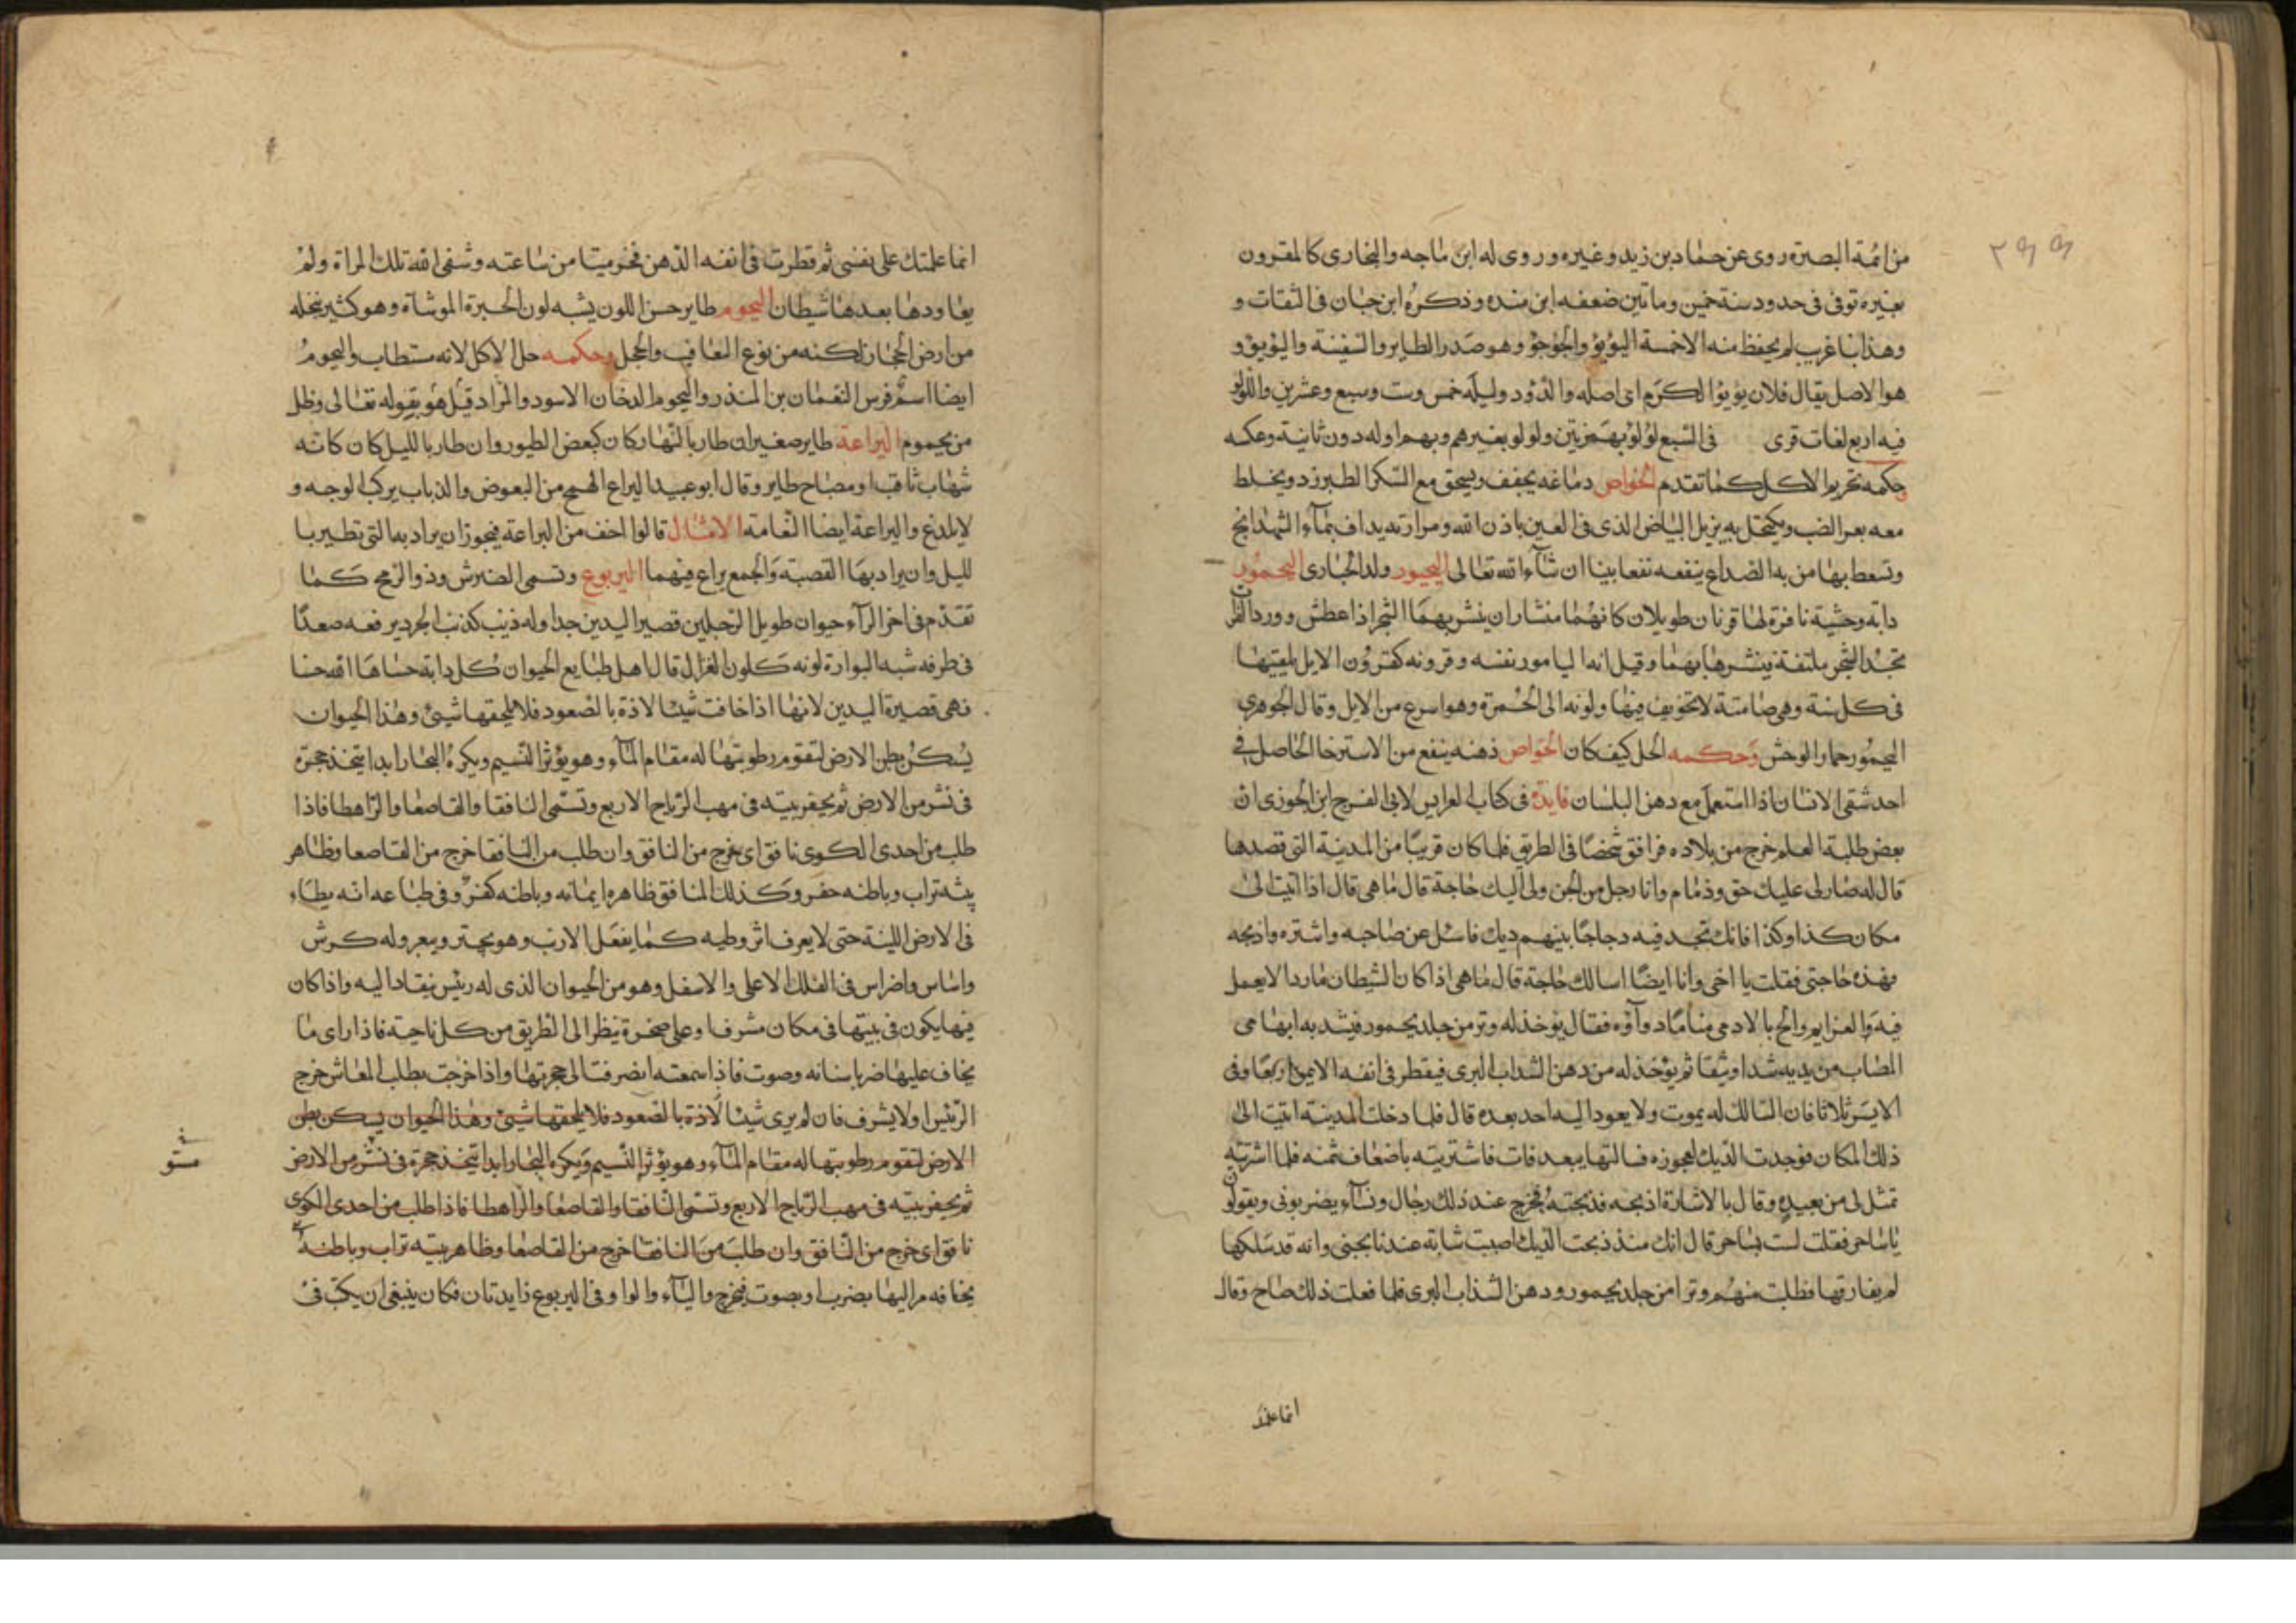 ٢٩٩
من ائمة البصرة روى عن حماد بن زيد وغيره وروى له ابن ماجه والبخارى كالمقرون
بغيره توفى فى حدود سنة خمسين وماتين ضعفه ابن منده وذكره ابن حبان فى الثقات و
وهذا بنا غريب لم يحفظ منه الا خمسة اليؤيؤ والجؤجؤ وهو صدر الطاير والسفينة واليؤيؤ و
هو الاصل يقال فلان يؤيؤ الكرم اى اصله والدؤدؤ وليلة خمس وست وسبع وعشرين واللؤلؤ
فيه اربع لغات قرى فى السبع لؤلؤ بهمزتين ولولو بغيرهم وبهمز اوله دون ثانية وعكسه
وحكمه تحريم الاكل كما تقدم الخواص دماغه يجفف ويسحق مع السكر الطبرزد ويخلط
معه بعر الضب ويكتحل به يزيل البياض الذى فى العين باذن الله ومرارته يداف بماء الشهدانج
وتسعط بها من به الصداع ينفعه نفعا بينا ان شاء الله تعالى اليحبور ولد الحبارى اليحمور
دابة وحشية نافرة لها قرنان طويلان كانهما منشاران ينشر بهما الشجر اذا عطش وورد الفرات
تجد الشجر ملتفة فينشرها بهما وقيل انه اليامور نفسه وقرونه كقرون الايل يلقيها
فى كل سنة وهى صامتة لا تجويف فيها ولونه الى الحمرة وهو اسرع من الايل وقال الجوهرى
اليحمور حمار الوحش وحكمه الحل كيف كان الخواص دهنه ينفع من الاسترخا الحاصل فى
احد شقى الانسان اذا استعمل مع دهن البلسان فايدة فى كتاب العرايس لابى الفرج ابن الجوزى ان
بعض طلبة العلم خرج من بلاده فرافق شخصا فى الطريق فلما كان قريبا من المدينة التى قصدها
قال له صار لى عليك حق وذمام وانا رجل من الجن ولى اليك حاجة قال ما هى قال اذا اتيت الى
مكان كذا وكذا فانك تجد فيه دجاجا بينهم ديك فاسئل عن صاحبه واشتره واذبحه
فهذه حاجتى فقلت يا اخى وانا ايضا اسالك حاجة قال ما هى اذا كان الشيطان ماردا لا يعمل
فيه العزايم والح بالادمى منا ما دواؤه فقال يؤخذ له وتر من جلد يحمور فيشد به ابهامى
المصاب من يديه شدا وثيقا ثم يؤخذ له من دهن السداب البرى فيقطر فى انفه الايمن اربعا وفى
الايسر ثلاثا فان السالك له يموت ولا يعود اليه احد بعده قال فلما دخلت المدينة اتيت الى
ذلك المكان فوجدت الديك لعجوزه فسالتها بيعه فابت فاشتريته باضعاف ثمنه فلما اشتريته
تمثل لى من بعيد وقال بالاشارة اذبحه فذبحته فخرج عند ذلك رجال ونساء يضربونى ويقولون
يا ساحر فقلت لست بساحر قال انك منذ ذبحت الديك اصيبت شابة عندنا بجنى وانه قد سلكها
لم يفارقها فطلبت منهم وترا من جلد يحمور ودهن السذاب البرى فلما فعلت ذلك صاح وقال
انما علمتك
انما علمتك على نفسى ثم قطرت فى انفه الدهن فخر ميتا من ساعته وشفى الله تلك المراة ولم
يعاودها بعدها شيطان اليحموم طاير حسن اللون يشبه لون الحبرة الموشاة وهو كثير بنخله
من ارض الحجاز لكنه من نوع اليعاقيب والحجل وحكمه حل الاكل لانه مستطاب واليحموم
ايضا اسم فرس النعمان بن المنذر واليحموم الدخان الاسود والمراد قيل هو بقوله تعالى وظل
من يحموم اليراعة طاير صغير ان طار بالنهار كان كبعض الطيور وان طار بالليل كان كانه
شهاب ثاقب او مصباح طاير وقال ابو عبيد اليراع الهمج من البعوض والذباب يركب الوجه و
لا يلدغ واليراعة ايضا النعامة الامثال قالوا اخف من اليراعة فيجوز ان يراد به التى تطير با
لليل وان يراد بها القصبة والجمع يراع فيهما اليربوع وتسمى الضرش وذو الرمح كما
تقدم فى اخر الراء حيوان طويل الرجلين قصير اليدين جدا وله ذنب كذنب الجرد يرفعه صعدا
فى طرفه شبه النوارة لونه كلون الغزال قال اهل طبايع الحيوان كل دابة حشاها الله خشا
فهى قصيرة اليدين لانها اذا خافت شيئا لاذة بالصعود فلا يلحقها شيئ وهذا الحيوان
يسكن بطن الارض لتقوم رطوبتها له مقام الماء وهو يؤثر النسيم ويكره البحار ابدا يتخذ حجرة
فى نشز من الارض ثم يحفر بيته فى مهب الرياح الاربع وتسمى النافقا والقاصعا والراهطا فاذا
طلب من احدى الكوى نافق اى خرج من النافق وان طلب من النافقا خرج من القاصعا وظاهر
بيته تراب وباطنه حفر وكذلك المنافق ظاهره ايمانه وباطنه كفر وفى طباعه انه يطاء
فى الارض اللينة حتى لا يعرف اثر وطيه كما يفعل الارنب وهو يجتر ويبعر وله كرش
واسنان واضراس فى الفلك الاعلى والاسفل وهو من الحيوان الذى له رئيس ينقاد اليه واذا كان
فيها يكون فى بيتها فى مكان مشرف او على صخرة ينظر الى الطريق من كل ناحية فاذا راى ما
يخاف عليها ضر باسنانه وصوت فاذا سمعته انصرفت الى حجرتها واذا خرجت بطلب المعاش خرج
الرئيس اولا يشرف فان لم يرى شيئا لاذة بالصعود فلا يلحقها شيئ وهذا الحيوان يسكن بطن
الارض لتقوم رطوبتها له مقام الماء وهو يؤثر النسيم ويكره البحار ابدا يتخذ حجرة فى نشز من الارض
ثم يحفر بيته فى مهب الرياح الاربع وتسمى النافقا والقاصعا والراهطا فاذا طلب من احدى الكوى
نافق اى خرج من النافق وان طلب من النافقا خرج من القاصعا وظاهر بيته تراب وباطنه
يخافه مر اليها بضرب او بصوت فيخرج والياء والواو فى اليربوع زايدتان فكان ينبغى ان يكتب فى